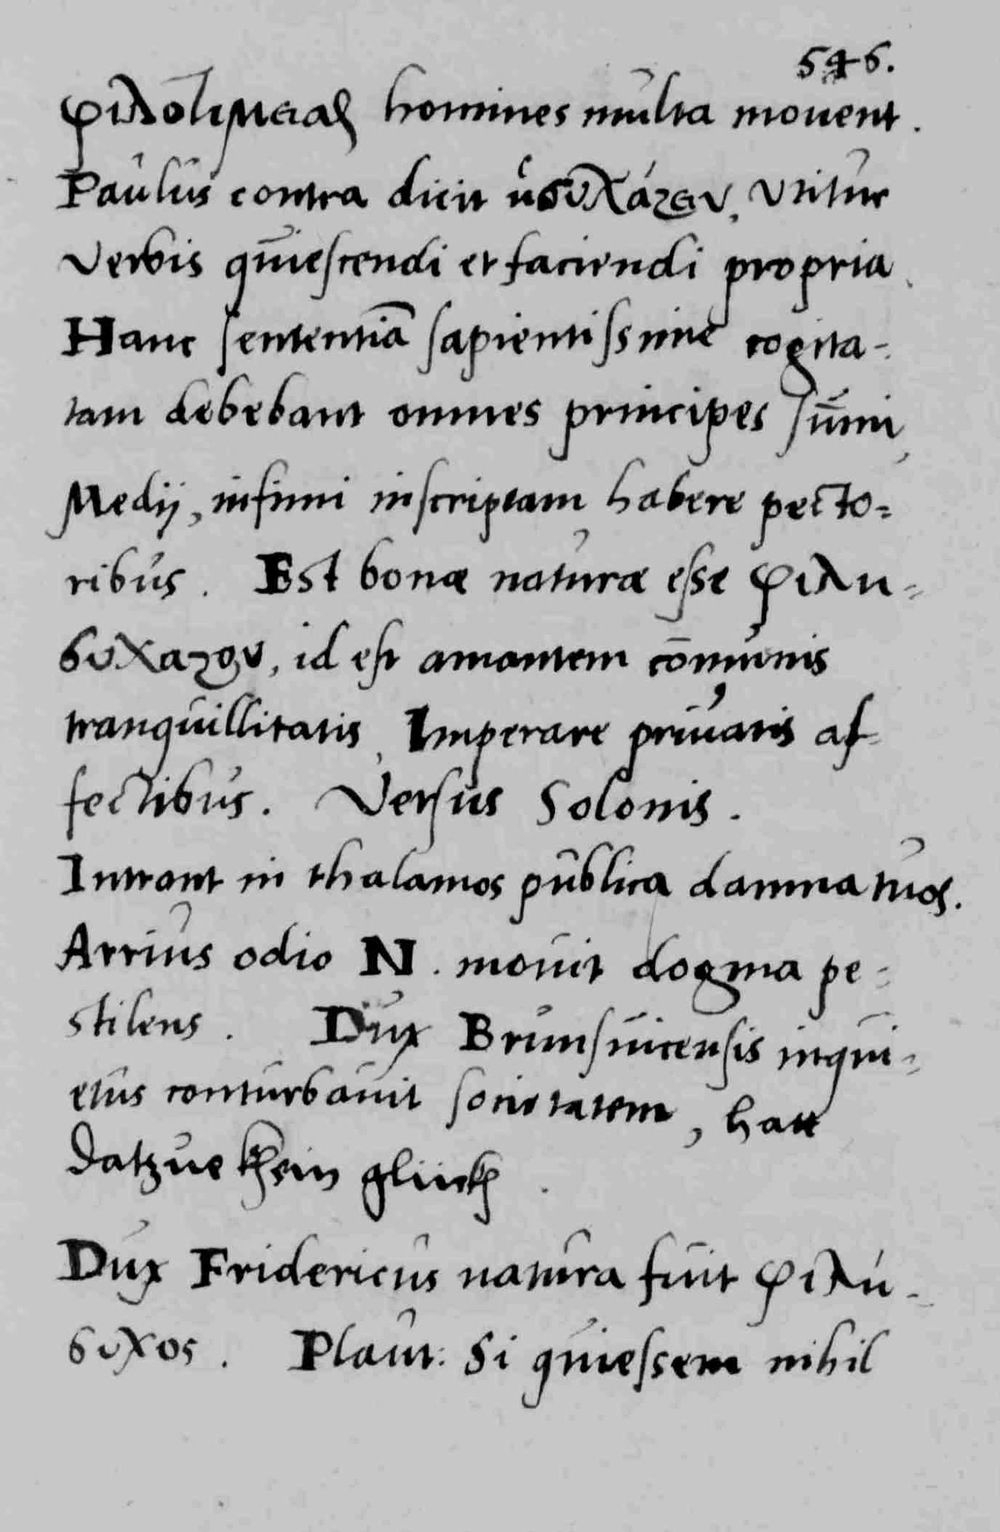 546.
φιλοτιμειας homines multa movent.
Paulus contra dicit ἡσυχάζειν, Utitur
Verbis quiescendi et faciendi propria.
Hanc sententiā sapientissime cogita-
tam debebant omnes principes sūmi,
Medij, infimi inscriptam habere pecto=
ribus. Est bonæ naturæ esse φιλη=
συχαζον, id est amantem cōmunis
tranquillitatis, Imperare privatis af=
fectibus. Versus Solonis.
Intrant in thalamos publica damna tuos.
Arrius odio N. movit dogma pe=
stilens. Dux Brunsvicensis inqui=
etus conturbavit societatem, hatt
datzue khein glückh.
Dux Fridericus natura fuit φιλή=
συχος. Plaut: Si quiessem nihil